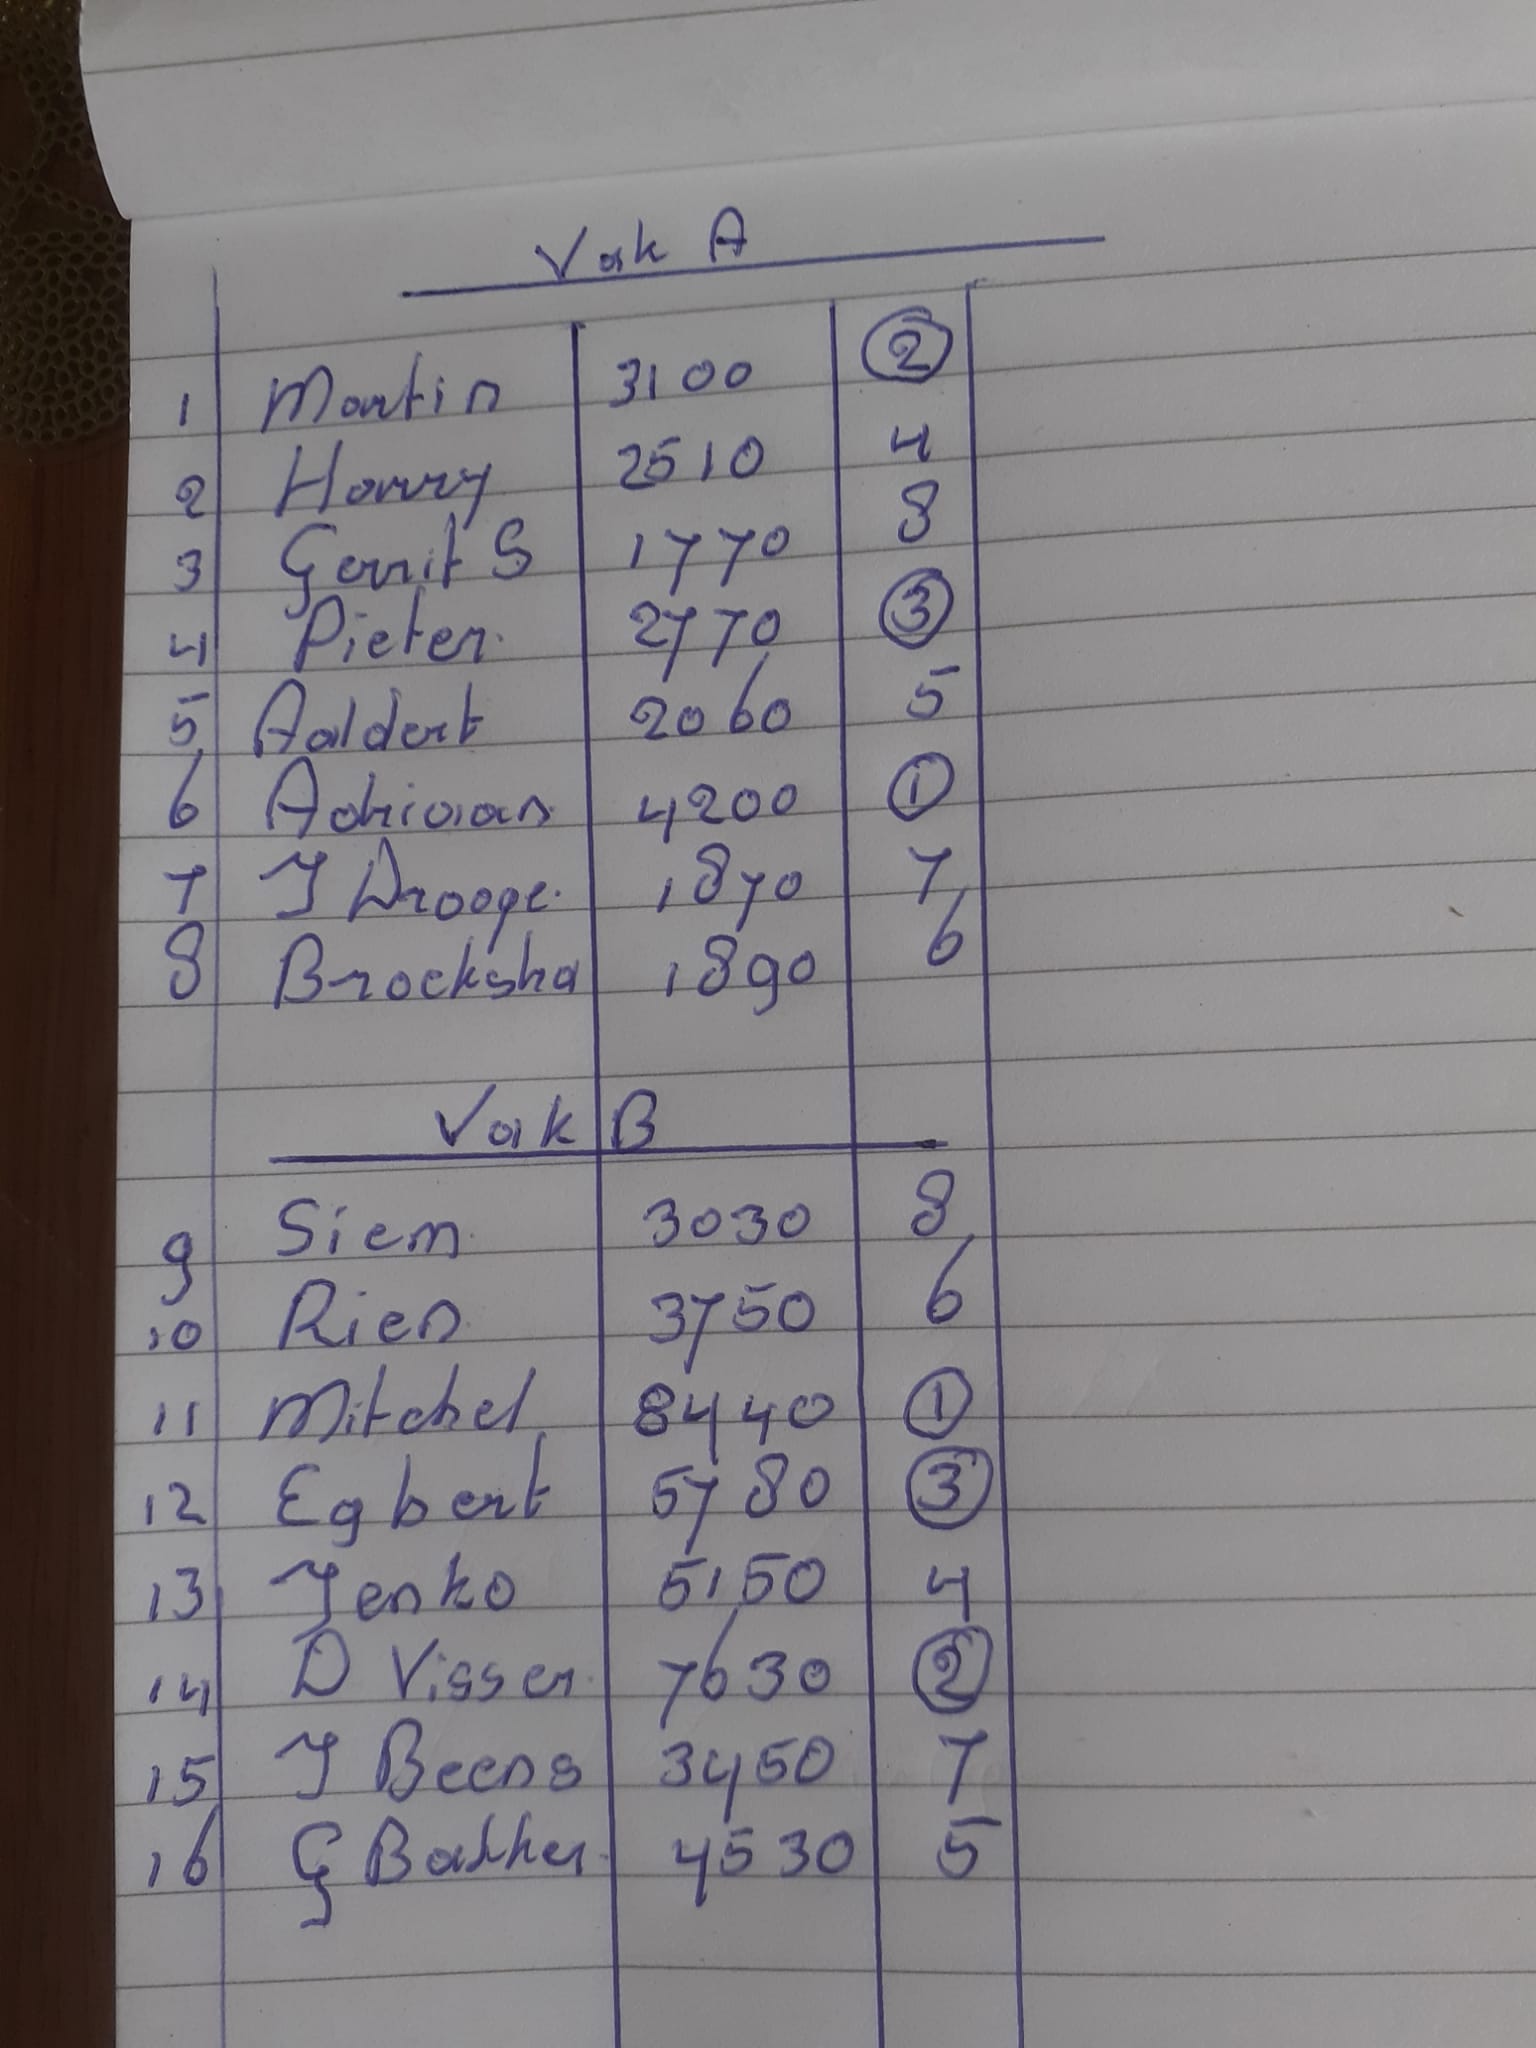 Vak A
1 Martin 3100 2
2 Harry 2510 4
3 Gerrit S 1770 8
4 Pieter 2770 3
5 Aaldert 2060 5
6 Adriaan 4200 1
7 J Drooge 1870 7
8 Brocksha 1890 6
Vak B
9 Siem 3030 8
10 Rien 3750 6
11 Mitchel 8440 1
12 Egbert 5780 3
13 Jenko 5150 4
14 D Visser 7630 2
15 J Beens 3450 7
16 G Bakker 4530 5